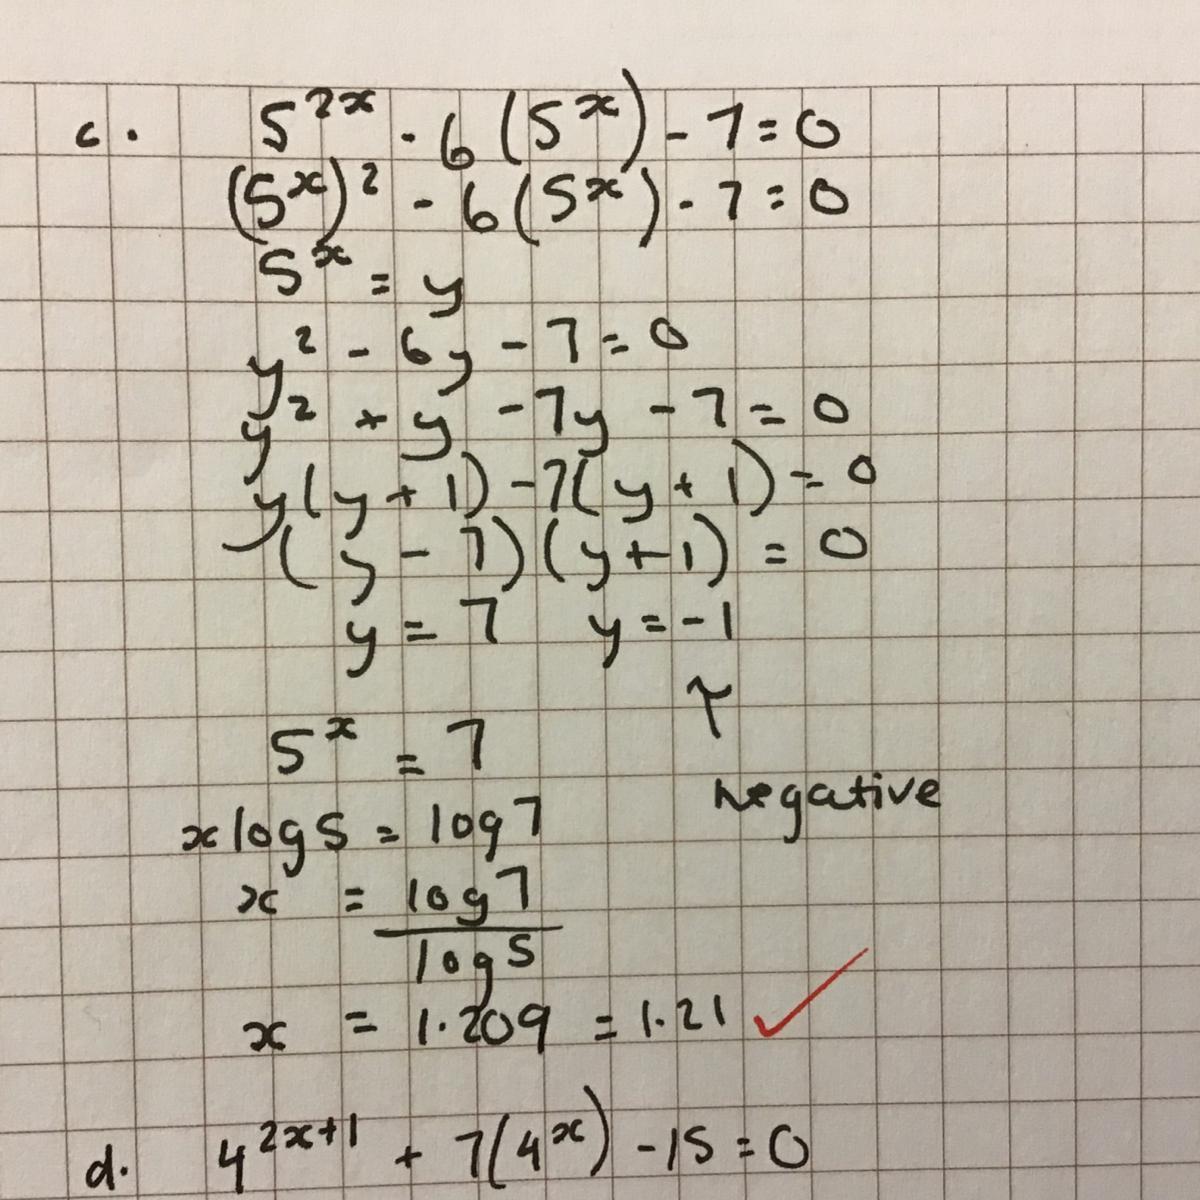 c. 5^2x - 6(5^x) - 7 = 0
(5^x)^2 - 6(5^x) - 7 = 0
5^x = y
y^2 - 6y - 7 = 0
y^2 + y - 7y - 7 = 0
y(y + 1) - 7(y + 1) = 0
(y - 7)(y + 1) = 0
y = 7 y = -1
↑
5^x = 7
negative
x log 5 = log 7
x = log 7
log 5
x = 1.209 = 1.21 ✓
d. 4^2x+1 + 7(4^x) - 15 = 0